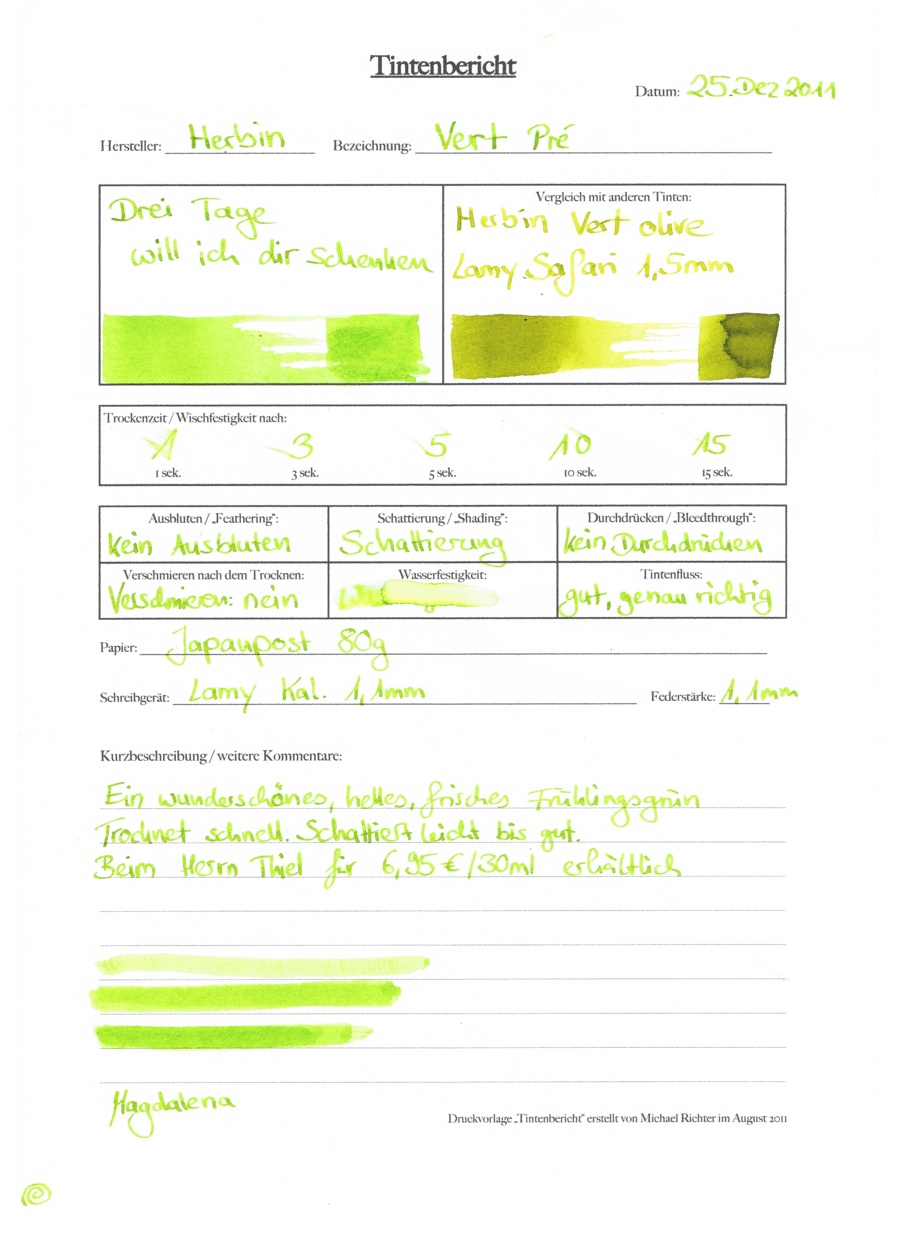 Tintenbericht
Datum: 25. Dez 2011
Hersteller: Herbin Bezeichnung: Vert Pré
Drei Tage
will ich dir schenken
Vergleich mit anderen Tinten:
Herbin Vert olive
Lamy Safari 1,5mm
Trockenzeit / Wischfestigkeit nach:
1 3 5 10 15
1 sek. 3 sek. 5 sek. 10 sek. 15 sek.
Ausbluten / „Feathering“: Schattierung / „Shading“: Durchdrücken / „Bleedthrough“:
kein Ausbluten Schattierung kein Durchdrücken
Verschmieren nach dem Trocknen: Wasserfestigkeit: Tintenfluss:
Verschmieren: nein gut, genau richtig
Papier: Japanpost 80g
Schreibgerät: Lamy Kal. 1,1mm Federstärke: 1,1mm
Kurzbeschreibung / weitere Kommentare:
Ein wunderschönes, helles, frisches Frühlingsgrün
Trocknet schnell. Schattiert leicht bis gut.
Beim Herrn Thiel für 6,95 € / 30ml erhältlich
Magdalena
Druckvorlage „Tintenbericht“ erstellt von Michael Richter im August 2011